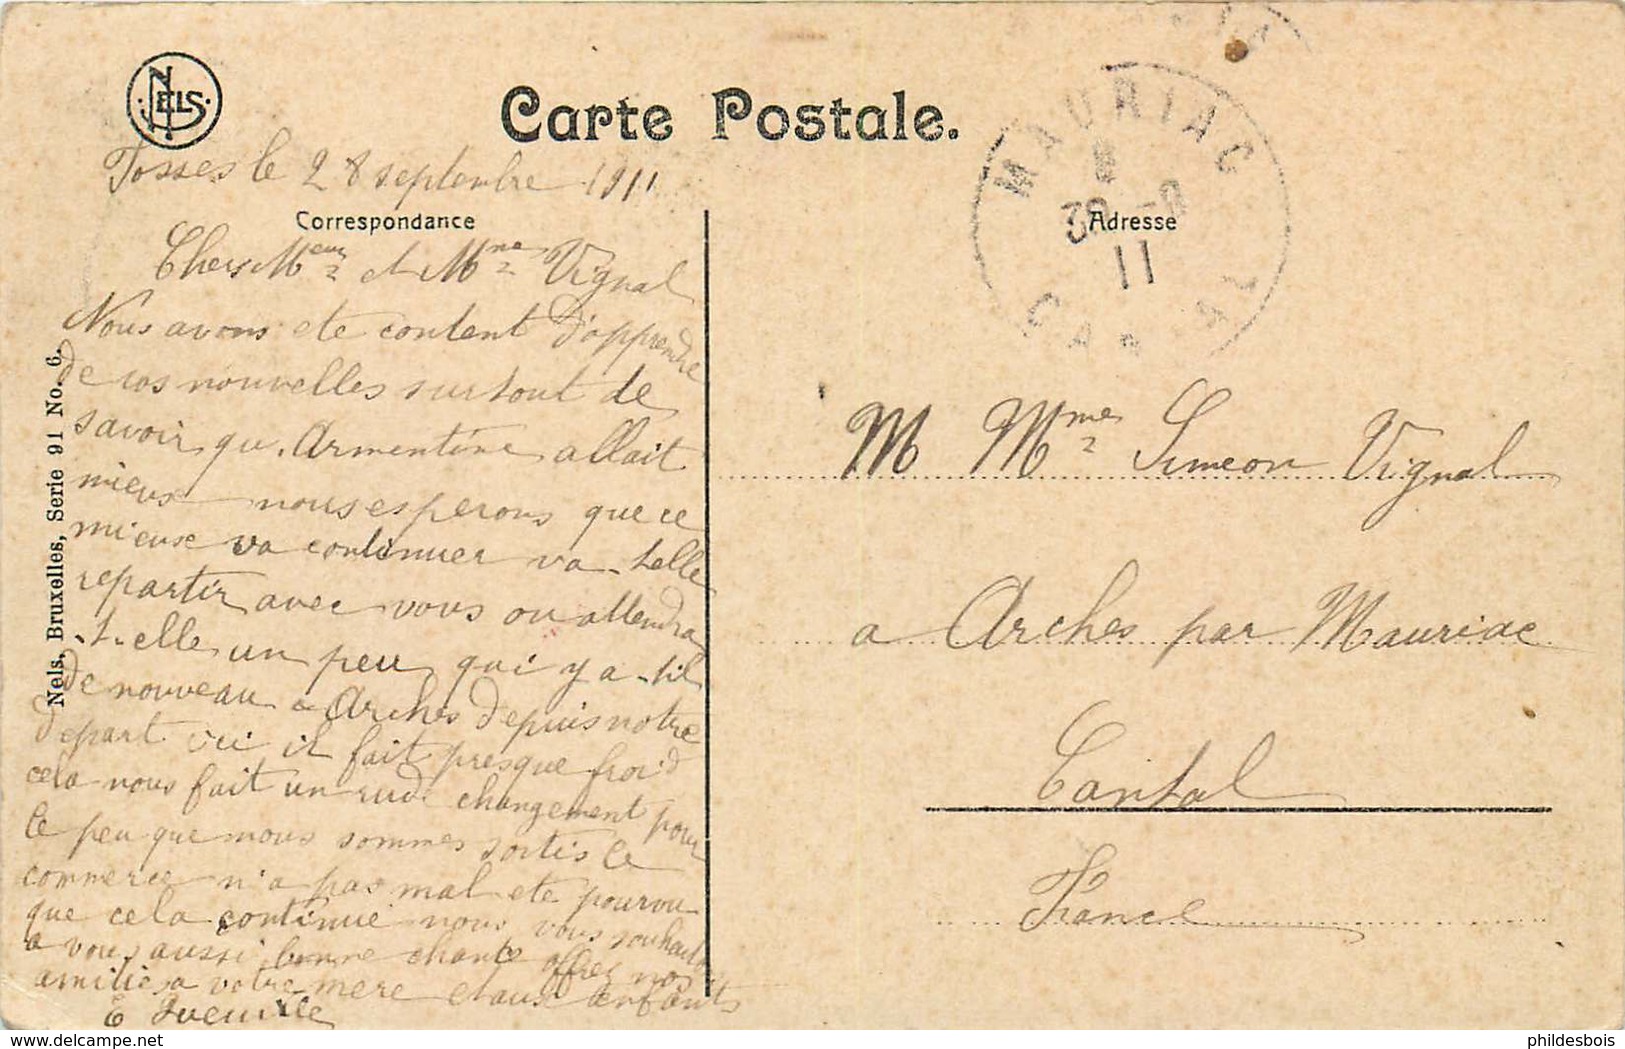 NELS
Carte Postale.
Fosses le 28 septembre 1911
Correspondance
Adresse
MAURIAC
30 -9
11
CANTAL
Nels, Bruxelles, Serie 91 No. 6.
Chers Meur et Mme Vignal
Nous avons ete content d'apprendre
de vos nouvelles surtout de
savoir qu. Armentine allait
mieux nous esperons que ce
mieuse va continuer va-telle
repartir avec vous ou attendra
-t-elle un peu qui y a-til
de nouveau a Arches depuis notre
depart ici il fait presque froid
cela nous fait un rude changement pour
le peu que nous sommes sortis le
commerce n'a pas mal ete pourvu
que cela continue nous vous souhaitons
a vous aussi bonne chance offrez nos
amities a votre mere et aux enfants
M Mme Simeon Vignal
a Arches par Mauriac
Cantal
France
www.delcampe.net
phildesbois